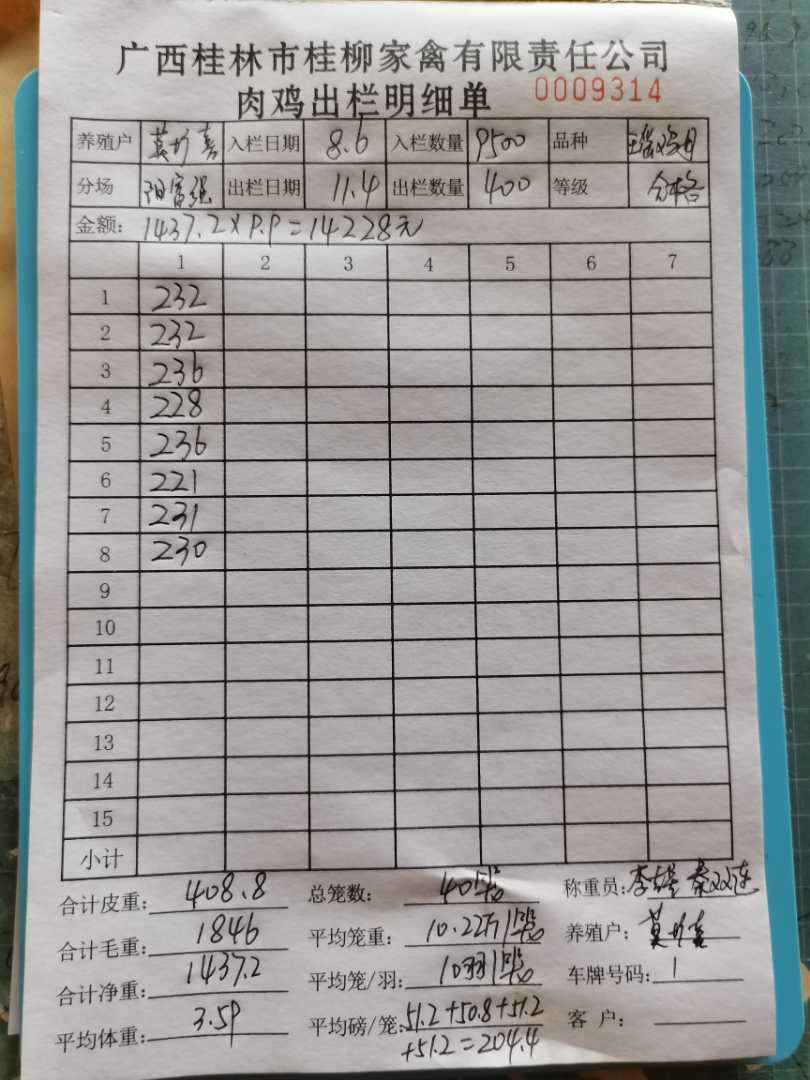 广西桂林市桂柳家禽有限责任公司
肉鸡出栏明细单 0009314
养殖户 入栏日期 8.6 入栏数量 9500 品种
分场 阳富强 出栏日期 11.4 出栏数量 400 等级 合格
金额: 1437.2×9.9=14228元
1 2 3 4 5 6 7
1 232
2 232
3 236
4 228
5 236
6 221
7 231
8 230
9
10
11
12
13
14
15
小计
合计皮重: 408.8 总笼数: 40笼 称重员:
合计毛重: 1846 平均笼重: 10.22斤/笼 养殖户:
合计净重: 1437.2 平均笼/羽: 10羽/笼 车牌号码: 1
平均体重: 3.59 平均磅/笼: 51.2+50.8+51.2 客 户:
+51.2=204.4